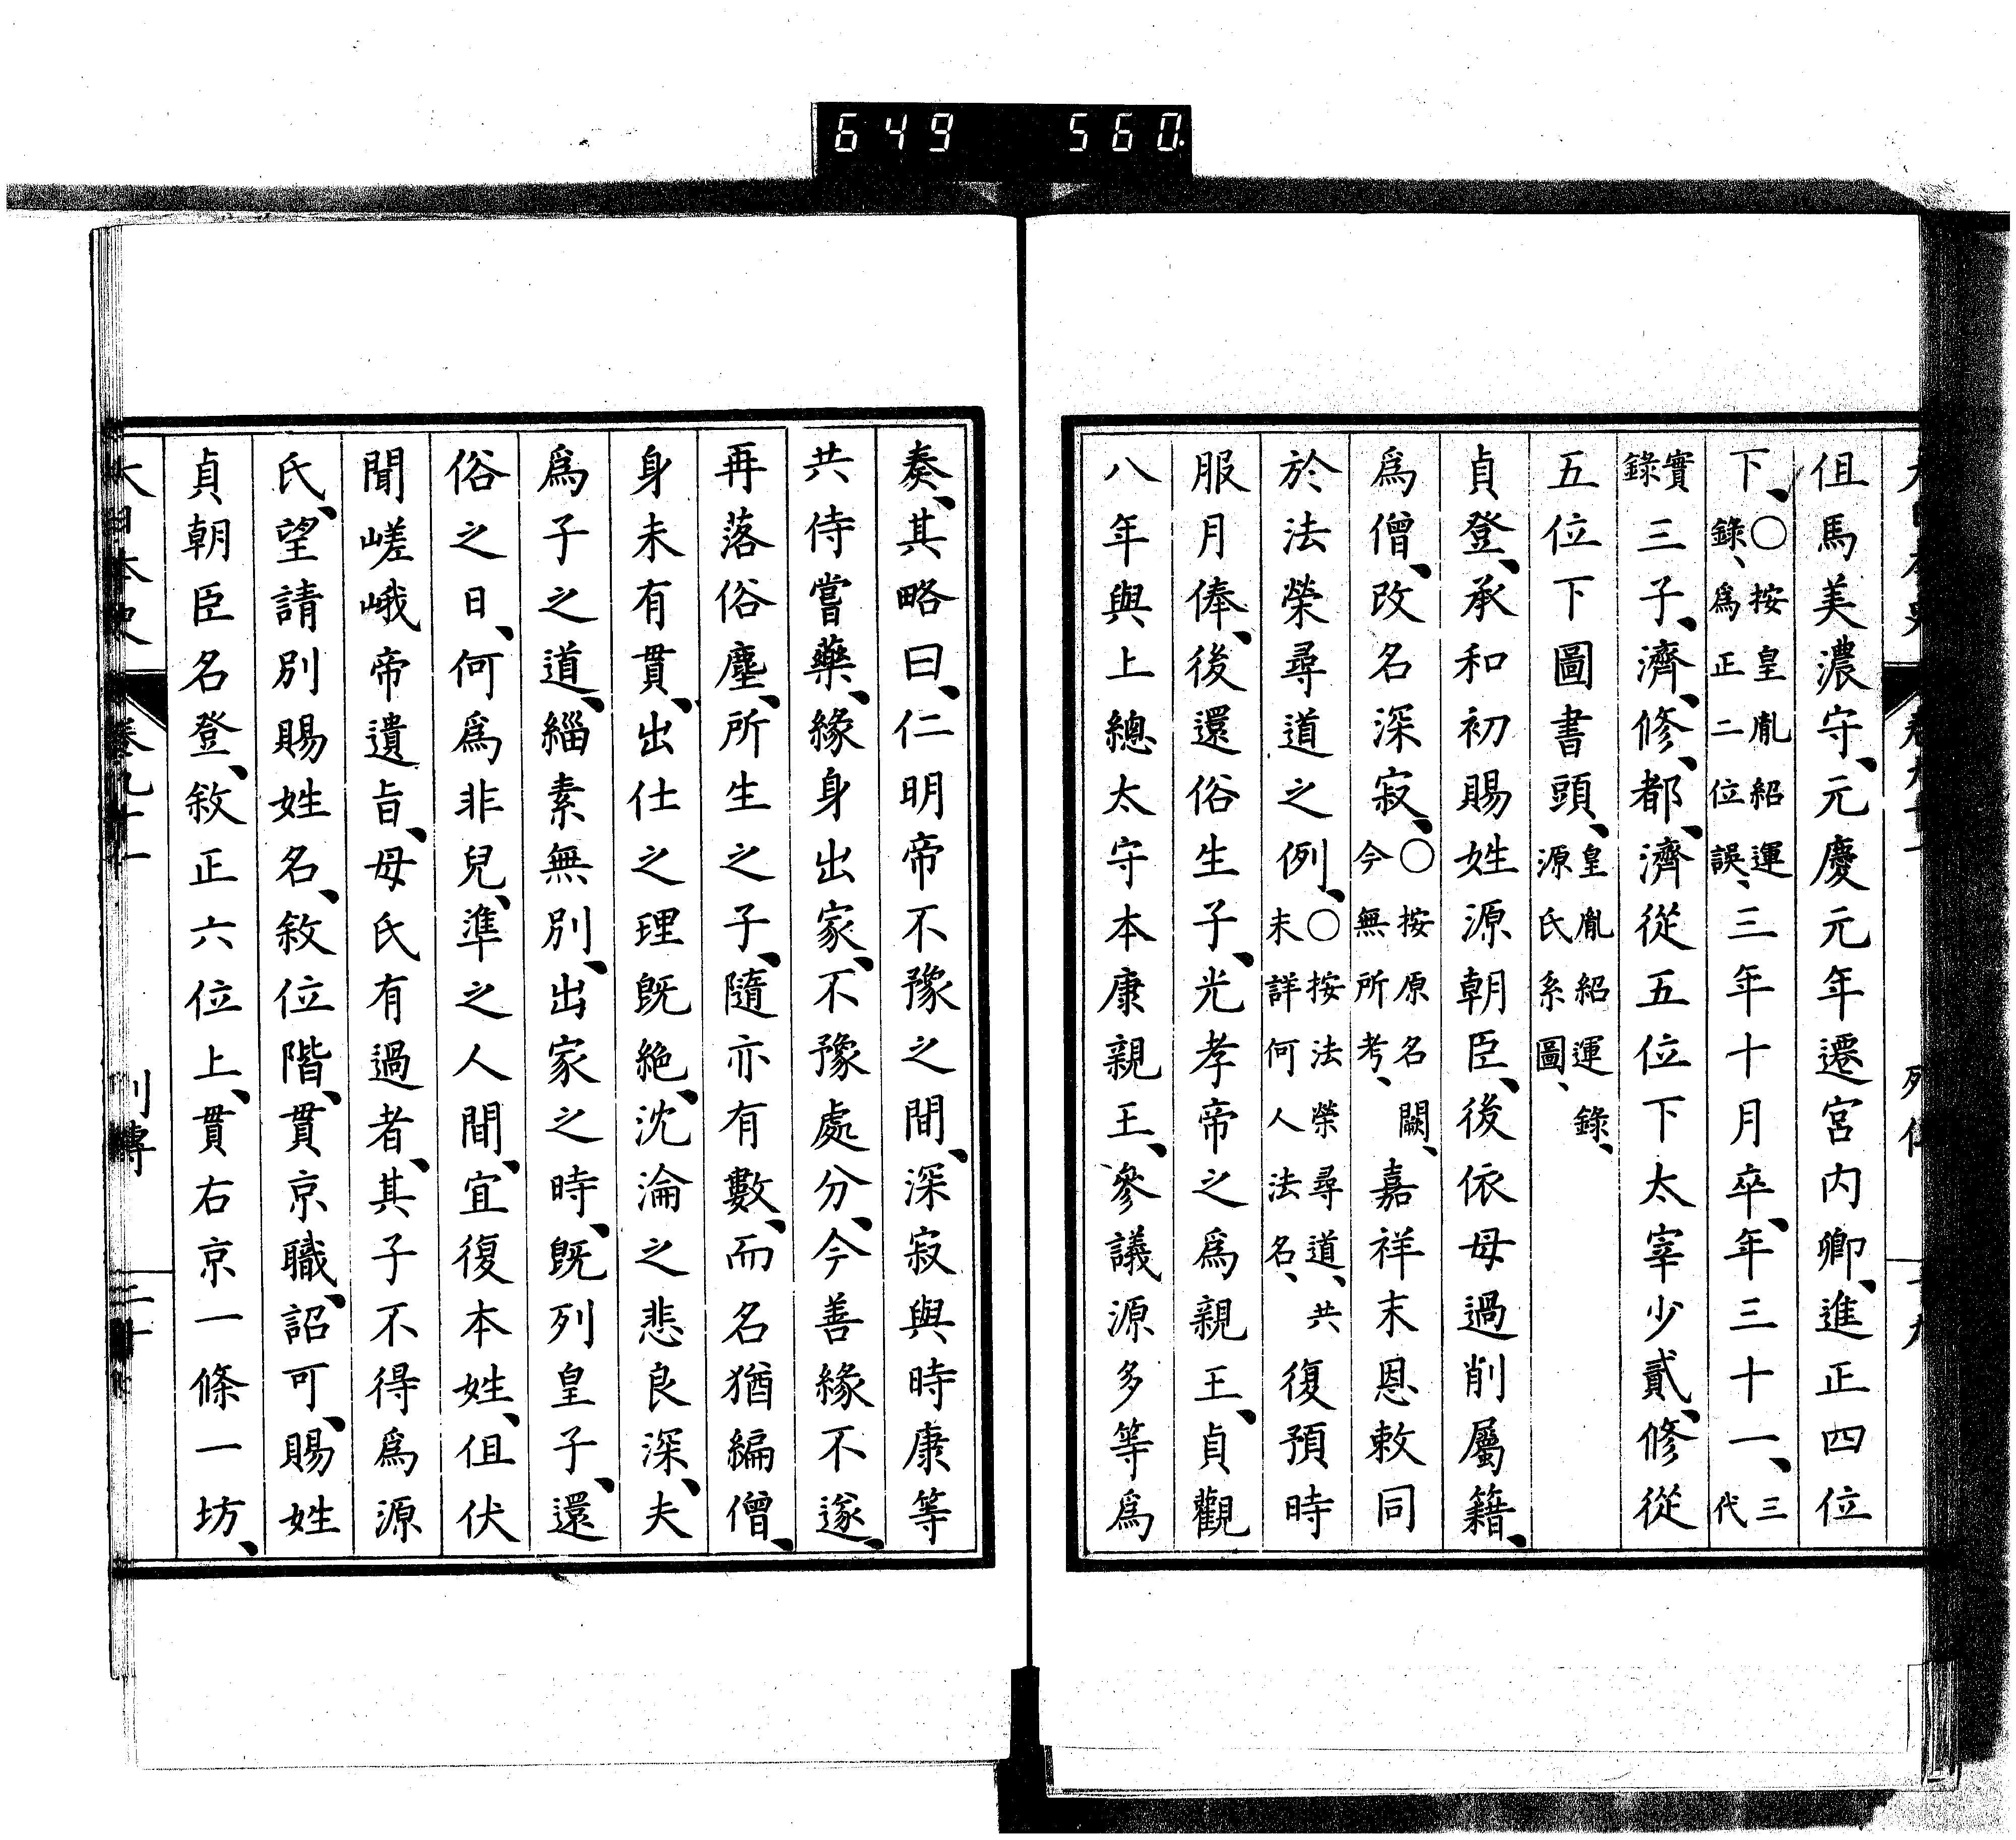 649 560.
伹馬美濃守、元慶元年遷宮内卿、進正四位
下、〇按皇胤紹運錄、爲正二位誤、三年十月卒、年三十一、三代
實錄三子、濟、修、都、濟從五位下太宰少貳、修從
五位下圖書頭、皇胤紹運錄、源氏系圖、
貞登、承和初賜姓源朝臣、後依母過削屬籍、
爲僧、改名深寂、〇按原名闕、今無所考、嘉祥末恩敕同
於法榮尋道之例、〇按法榮尋道、共未詳何人法名、復預時
服月俸、後還俗生子、光孝帝之爲親王、貞觀
八年與上總太守本康親王、參議源多等爲
奏、其略曰、仁明帝不豫之間、深寂與時康等
共侍嘗藥、緣身出家、不豫處分、今善緣不遂、
再落俗塵、所生之子、隨亦有數、而名猶編僧、
身未有貫、出仕之理既絶、沈淪之悲良深、夫
爲子之道、緇素無別、出家之時、既列皇子、還
俗之日、何爲非兒、準之人間、宜復本姓、伹伏
聞嵯峨帝遺旨、母氏有過者、其子不得爲源
氏、望請別賜姓名、敘位階、貫京職、詔可、賜姓
貞朝臣名登、敘正六位上、貫右京一條一坊、
大日本史 卷九十一 列傳 二十